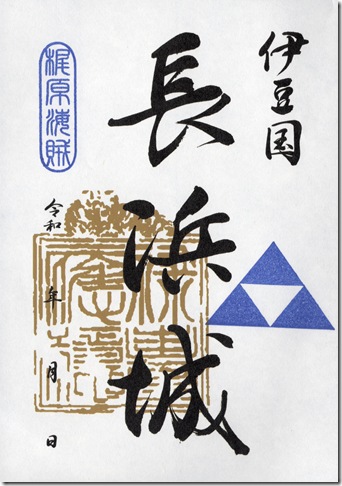 伊豆国
長浜城
梶原海賊
令和 年 月 日